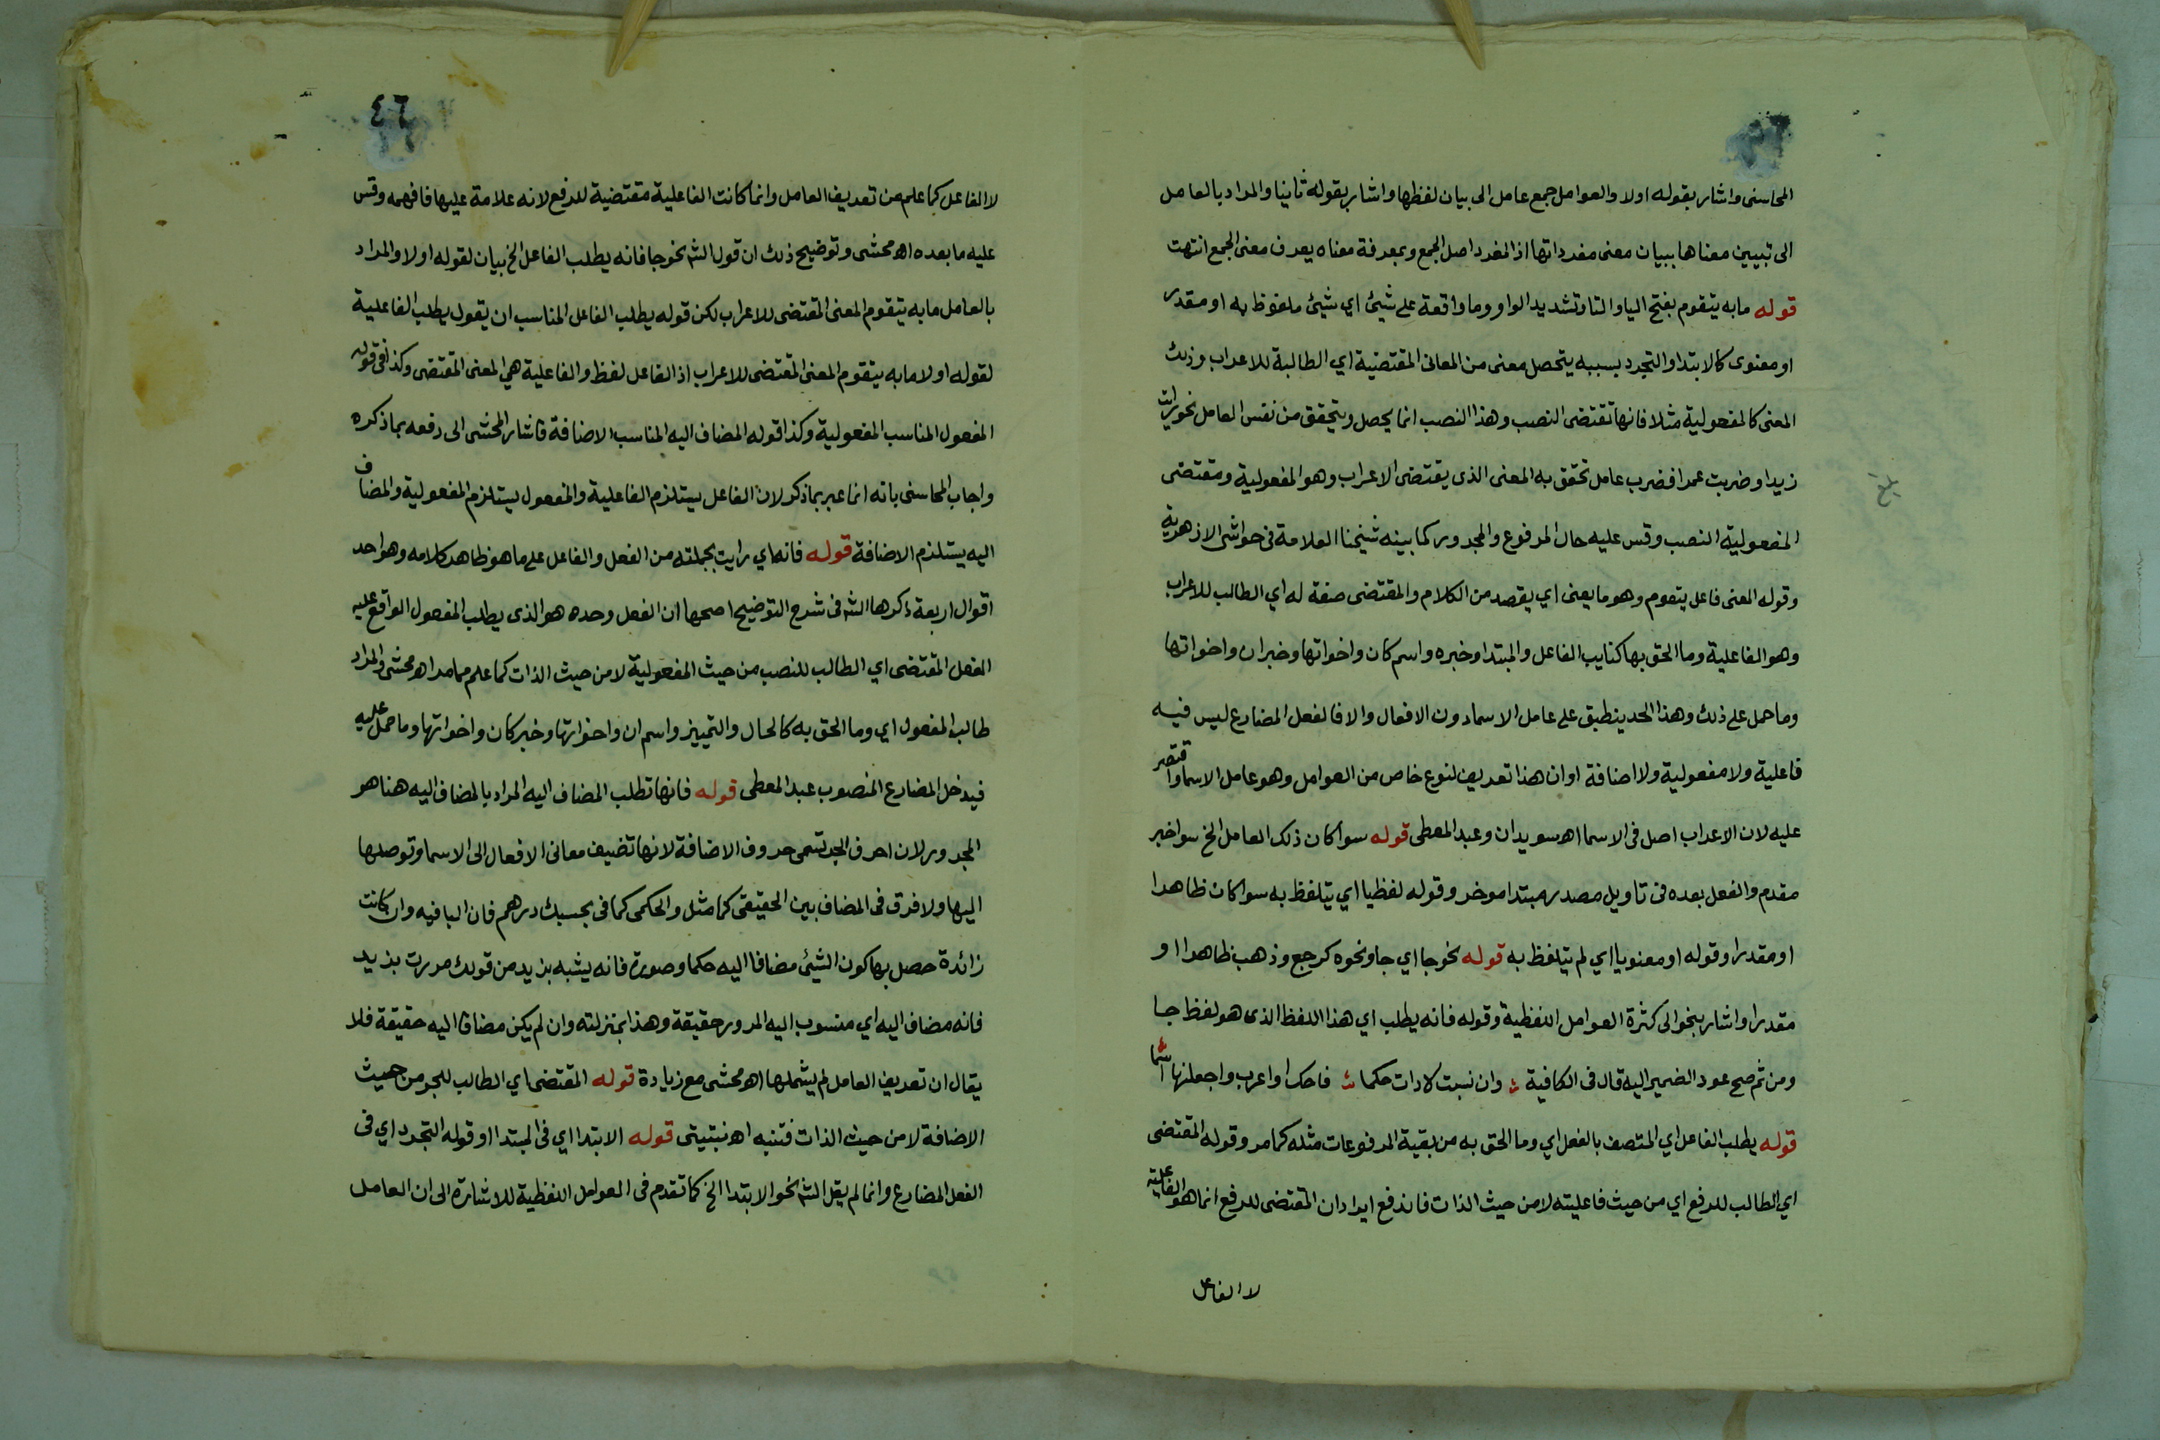 المحاسنى واشار بقوله اولا والعوامل جمع عامل الى بيان لفظها واشار بقوله ثانيا والمراد بالعامل
الى تبيين معناها ببيان معنى مفرداتها اذ المفرد اصل الجمع وبمعرفة معناه يعرف معنى الجمع انتهت
قوله مابه يتقوم بفتح اليا والتا وتشديد الواو وما واقعة على شيئ اي شيئ ملفوظ به او مقدر
او معنوى كالابتدا والتجرد بسببه يتحصل معنى من المعانى المقتضية اي الطالبة للاعراب وذلك
المعنى كالمفعولية مثلا فانها تقتضى النصب وهذا النصب انما يحصل ويتحقق من نفس العامل نحو رايت
زيدا وضربت عمرا فضرب عامل تحقق به المعنى الذى يقتضى الاعراب وهو المفعولية ومقتضى
المفعولية النصب وقس عليه حال المرفوع والمجرور كما بينه شيخنا العلامة فى حواشى الازهرية
وقوله المعنى فاعل يتقوم وهو ما يعنى اي يقصد من الكلام والمقتضى صفة له اي الطالب للاعراب
وهو الفاعلية وما الحق بها كنايب الفاعل والمبتدا وخبره واسم كان واخواتها وخبر ان واخواتها
وما حمل على ذلك وهذا الحد ينطبق على عامل الاسما دون الافعال والا فالفعل المضارع ليس فيه
فاعلية ولا مفعولية ولا اضافة او ان هذا تعريف لنوع خاص من العوامل وهو عامل الاسما واقتصر
عليه لان الاعراب اصل فى الاسما اه سويدان وعبد المعطى قوله سوا كان ذلك العامل الخ سوا خبر
مقدم والفعل بعده فى تاويل مصدر مبتدا موخر وقوله لفظيا اي يتلفظ به سوا كان ظاهرا
او مقدرا وقوله او معنويا اي لم يتلفظ به قوله نحو جا اي جا ونحوه كرجع وذهب ظاهرا او
مقدرا واشار بنحو الى كثرة العوامل اللفظية وقوله فانه يطلب اي هذا اللفظ الذى هو لفظ جا
ومن ثم صح عود الضمير اليه قال فى الكافية وان نسبت لادات حكما فاحك او اعرب واجعلنها اسما
قوله يطلب الفاعل اي المتصف بالفعل اي وما الحق به من بقية المرفوعات مثله كما مر وقوله المقتضى
اي الطالب للرفع اي من حيث فاعليته لا من حيث الذات فاندفع ايراد ان المقتضى للرفع انما هو الفاعلية
لا الفاعل
٤٦
لا الفاعل كما علم من تعريف العامل وانما كانت الفاعلية مقتضية للرفع لانه علامة عليها فافهمه وقس
عليه ما بعده اه محشى وتوضيح ذلك ان قول الش نحو جا فانه يطلب الفاعل الخ بيان لقوله اولا والمراد
بالعامل مابه يتقوم المعنى المقتضى للاعراب لكن قوله يطلب الفاعل المناسب ان يقول يطلب الفاعلية
لقوله اولا مابه يتقوم المعنى المقتضى للاعراب اذ الفاعل لفظ والفاعلية هي المعنى المقتضى وكذا فى قوله
المفعول المناسب المفعولية وكذا قوله المضاف اليه المناسب الاضافة فاشار المحشى الى دفعه بما ذكره
واجاب المحاسنى بانه انما عبر بما ذكر لان الفاعل يستلزم الفاعلية والمفعول يستلزم المفعولية والمضاف
اليه يستلزم الاضافة قوله فانه اي رايت بجملته من الفعل والفاعل على ما هو ظاهر كلامه وهو احد
اقوال اربعة ذكرها الش فى شرح التوضيح اصحها ان الفعل وحده هو الذى يطلب المفعول الواقع عليه
الفعل المقتضى اي الطالب للنصب من حيث المفعولية لا من حيث الذات كما علم مما مر اه محشى والمراد
طالب المفعول اي وما الحق به كالحال والتمييز واسم ان واخواتها وخبر كان واخواتها وما حمل عليه
فيدخل المضارع المنصوب عبد المعطى قوله فانها تطلب المضاف اليه المراد بالمضاف اليه هنا هو
المجرور لان احرف الجر تسمى حروف الاضافة لانها تضيف معانى الافعال الى الاسما وتوصلها
اليها ولا فرق فى المضاف بين الحقيقى كما مثل والحكمى كما فى بحسبك درهم فان البا فيه وان كانت
زائدة حصل بها كون الشيئ مضافا اليه حكما وصورة فانه يشبه بزيد من قولك مررت بزيد
فانه مضاف اليه اي منسوب اليه المرور حقيقة وهذا بمنزلته وان لم يكن مضافا اليه حقيقة فلا
يقال ان تعريف العامل لم يشملها اه محشى مع زيادة قوله المقتضى اي الطالب للجر من حيث
الاضافة لا من حيث الذات فتنبه اه نبتيتى قوله الابتدا اي فى المبتدا وقوله التجرد اي فى
الفعل المضارع وانما لم يقل الش نحو الابتدا الخ كما تقدم فى العوامل اللفظية للاشارة الى ان العامل